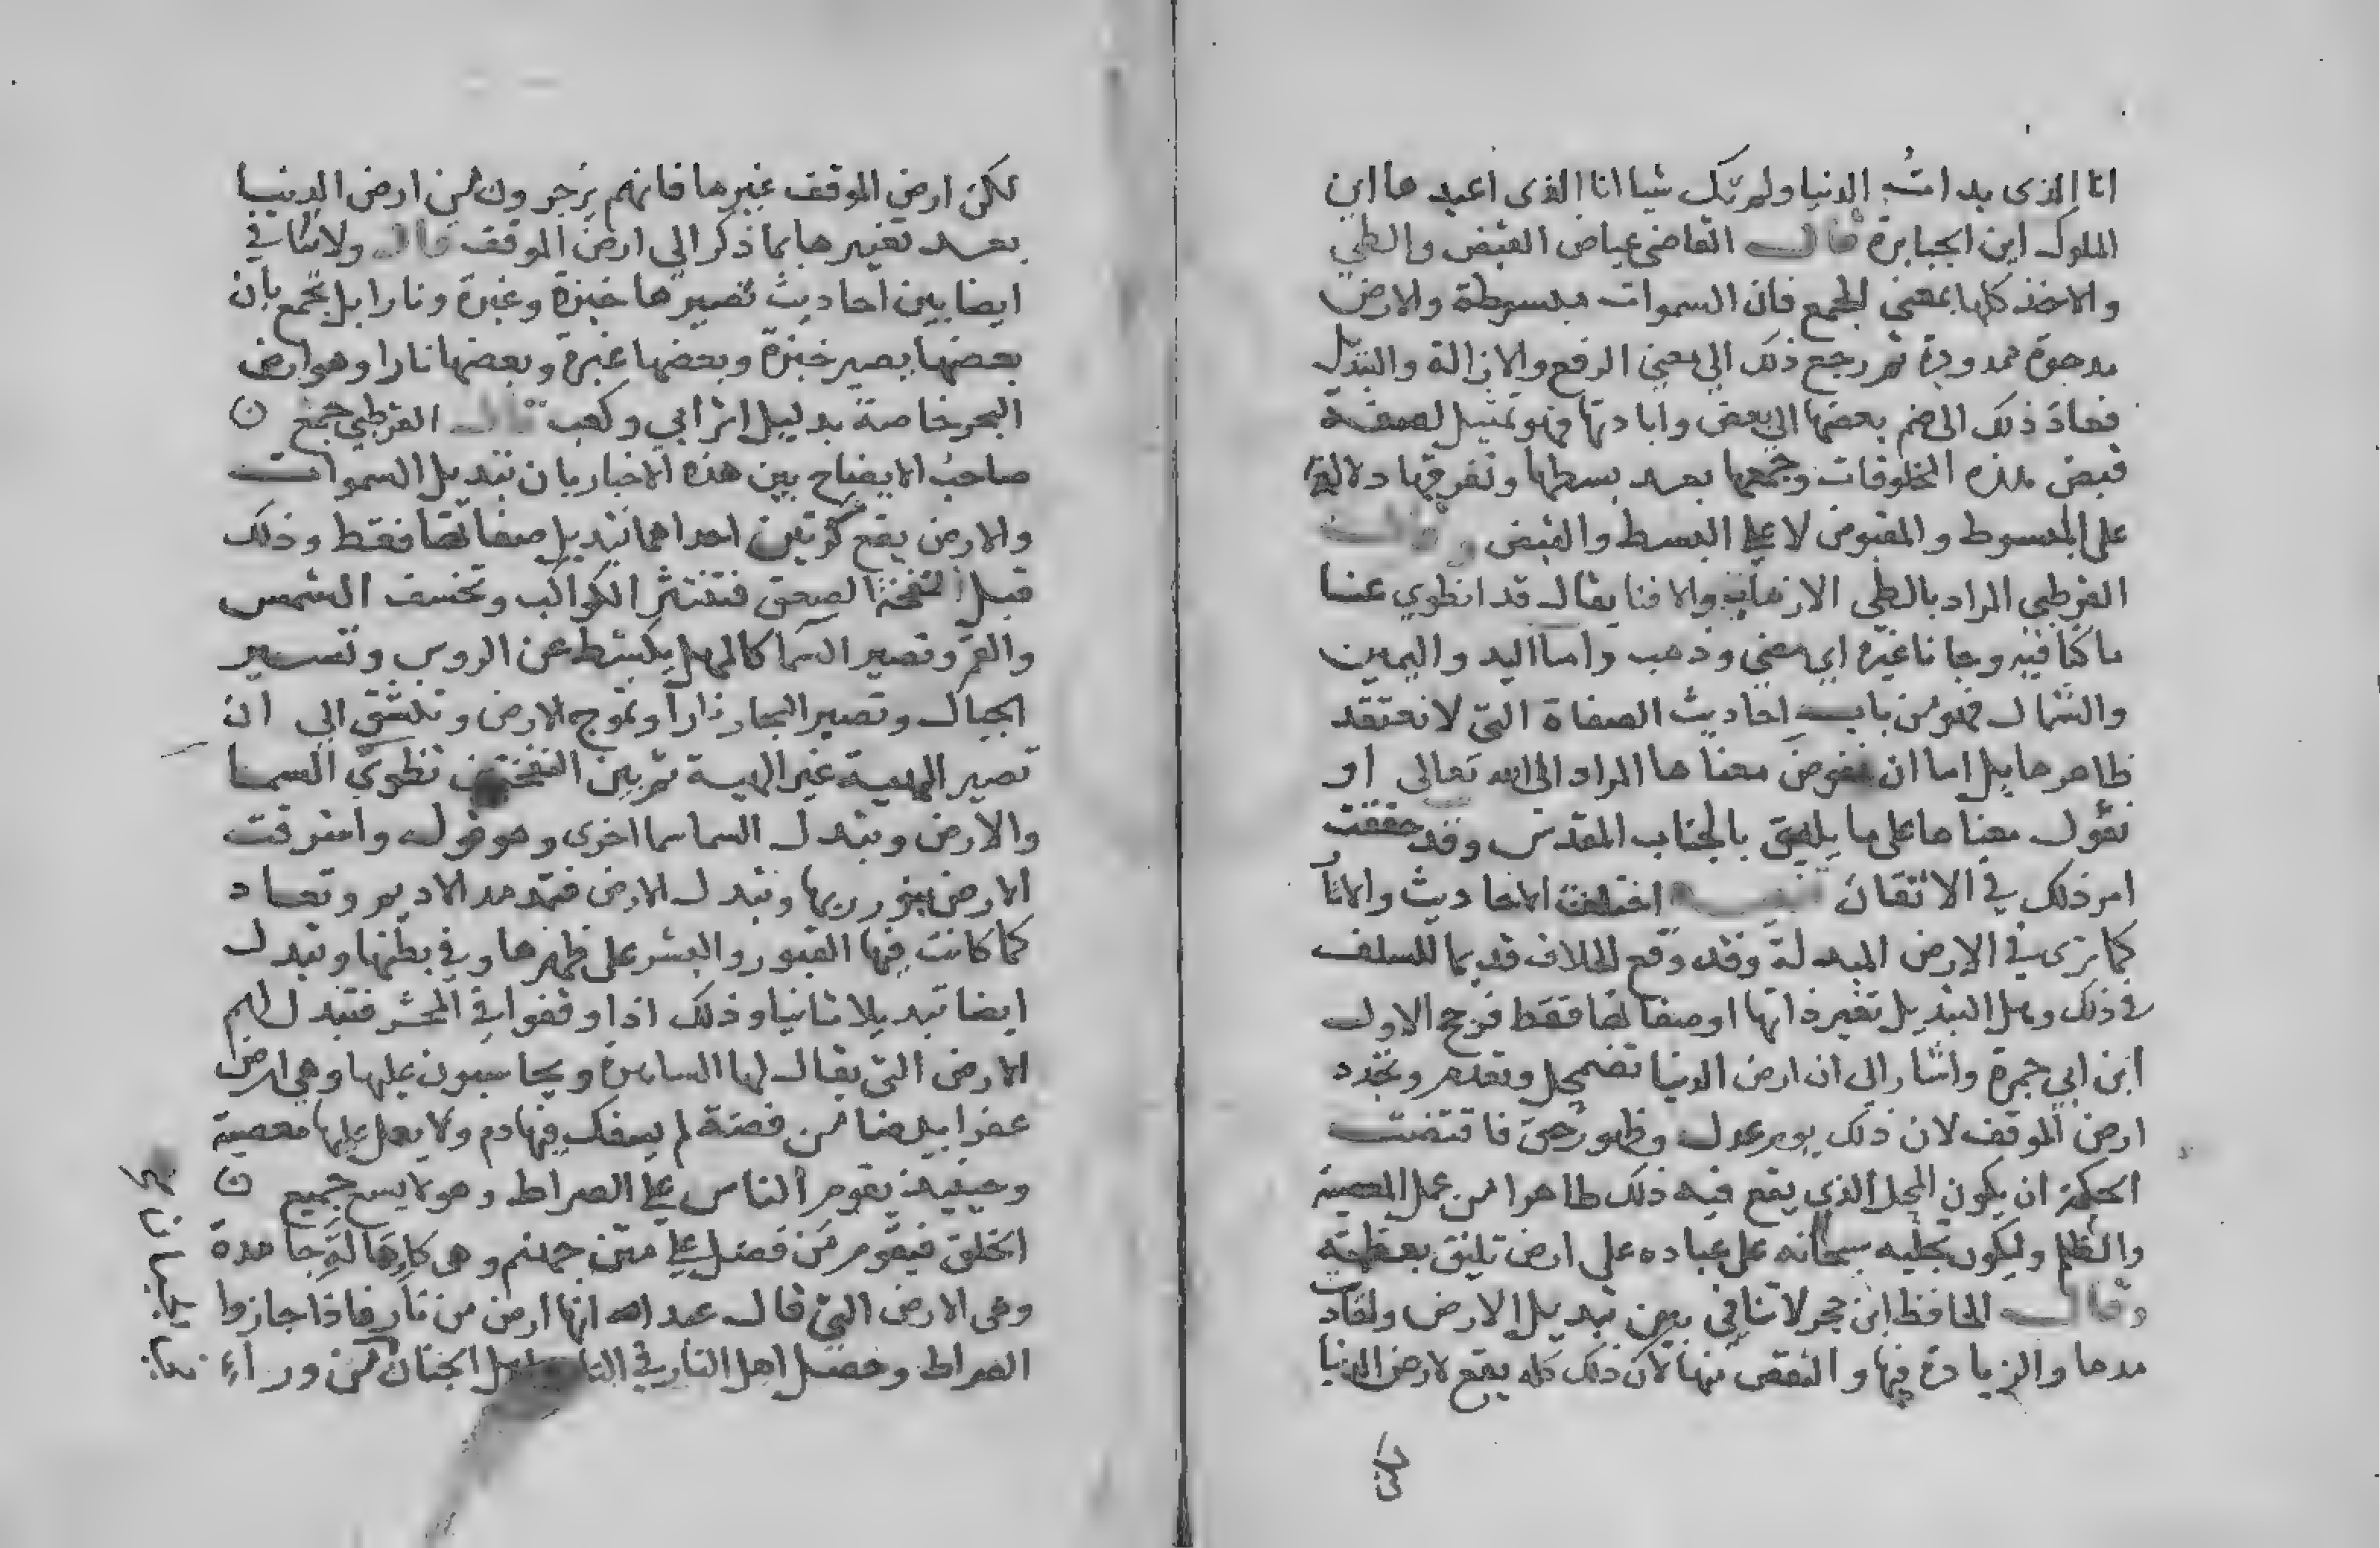 انا الذى بدات الدنيا ولم تك شيا انا الذى اعيدها اين
الملوك اين الجبابرة قال القاضى عياض القبض والطي
والاخذ كلها بمعنى الجمع فان السموات مبسوطة والارض
مدحوة ممدودة ثم رجع ذلك الى معنى الرفع والازالة والتبديل
فعاد ذلك الى ضم بعضها الى بعض وابادتها فهو تمثيل لصفة
قبض هذه المخلوقات وجمعها بعد بسطها وتفرقها دلالة
على المبسوط والمقبوض لا على البسط والقبض وقال
القرطبي المراد بالطي الاذهاب والافنا يقال قد انطوي عنا
ما كنا فيه وجانا غيره اي مضي وذهب واما اليد واليمين
والشمال فهو من باب احاديث الصفاة التى لا نعتقد
ظاهرها بل اما ان نفوض معناها المراد الى الله تعالى او
نؤول معناها على ما يليق بالجناب المقدس وقد حققت
امر ذلك في الاتقان تنبيه اختلفت الاحاديث والاثار
كما ترى في الارض المبدلة وقد وقع الخلاف قديما للسلف
في ذلك وهل التبديل تغير ذاتها او صفاتها فقط فرجح الاول
ابن ابي جمرة واشار الى ان ارض الدنيا تضمحل وتعدم وتجدد
ارض الموقف لان ذلك يوم عدل وظهور حق فاقتضت
الحكمة ان يكون المحل الذي يقع فيه ذلك طاهرا من عمل المعصية
والظلم وليكون تجليه سبحانه على عباده على ارض تليق بعظمته
وقال الحافظ ابن حجر لا تنافي بين تبديل الارض ولقاد
مدها والزيادة فيها والنقص منها لان ذلك كله يقع لارض الدنيا
لكن
لكن ارض الموقف غيرها فانهم يزجرون من ارض الدنيا
بعد تغيرها بما ذكر الي ارض الموقف قال ولا تنافي
ايضا بين احاديث تصيرها خبزة وغبرة ونارا بل تجمع بان
بعضها يصير خبزة وبعضها غبرة وبعضها نارا وهو ارض
البحر خاصة بدليل اثر ابي وكعب قال القرطبي جمع
صاحب الايضاح بين هذه الاخبار بان تبديل السموات
والارض يقع كرتين احداهما تبديل صفاتها فقط وذلك
قبل نفخة الصعق فتنتثر الكواكب وتخسف الشمس
والقمر وتصير السما كالمهل وتكشط عن الروس وتسير
الجبال وتصير البحار نارا وتموج الارض وتنشق الي ان
تصير الهيية غير الهيية ثم بين النفختين تطوي السما
والارض وتبدل السما سما اخرى وهو قوله واشرقت
الارض بنور ربها وتبدل الارض فتمد مد الاديم وتعاد
كما كانت فيها القبور والبشر على ظهرها وفي بطنها وتبدل
ايضا تبديلا ثانيا وذلك اذا وقفوا في المحشر فتبدل لهم
الارض التى يقال لها الساهرة ويحاسبون عليها وهي ارض
عفرا بيضا من فضة لم يسفك فيها دم ولا يعمل عليها معصية
وحينيذ يقوم الناس على الصراط وهو لا يسع جميع
الخلق فيقوم من فضل على متن جهنم وهى كاهالة جامدة
وهى الارض التي قال عبد الله انها ارض من نار فاذا جازوا
الصراط وحصل اهل النار في النار واهل الجنان من وراء